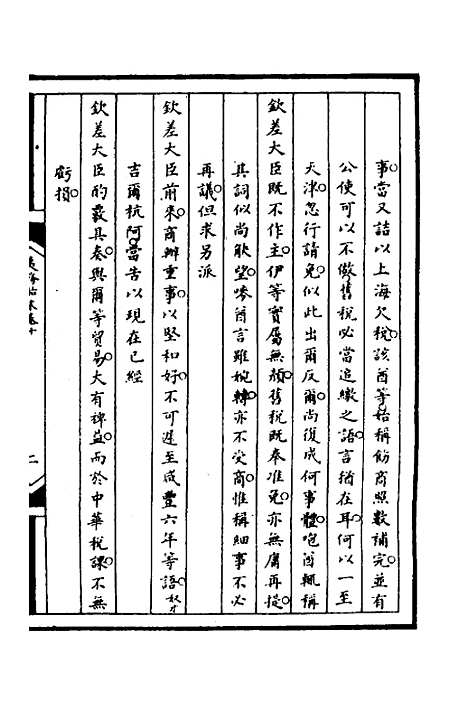 事當又詰以上海欠稅該酋等始稱飭商照數補完並有
公使可以不繳舊稅必當追繳之語言猶在耳何以一至
天津忽行請免似此出爾反爾尚復成何事體咆酋輒稱
欽差大臣既不作主伊等實屬無顏舊稅既奉准免亦無庸再提
其詞似尚觖望嘇酋言雖婉轉亦不受商惟稱細事不必
再議但求另派
欽差大臣前來商辦重事以堅和好不可遲至咸豐六年等語奴才
吉爾杭阿當告以現在已經
欽差大臣的覈具奏與爾等貿易大有裨益而於中華稅課不無
虧損
卷十
二